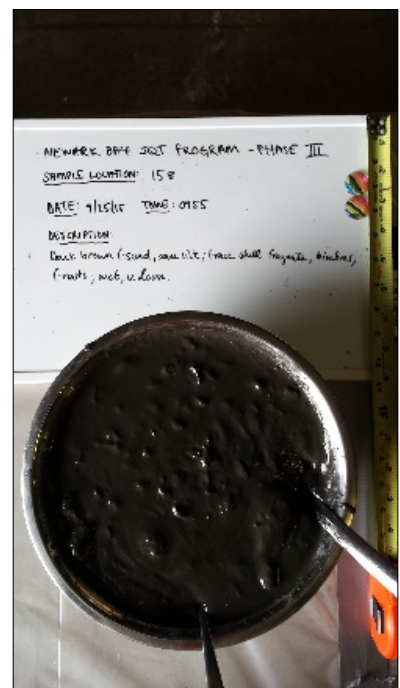 NEWARK BAY SQT PROGRAM - PHASE III
SAMPLE LOCATION: 158
DATE: 9/25/15 TIME: 0955
DESCRIPTION:
Dark brown f-sand, some silt; trace shell fragments, bivalves,
wet, v. loose.